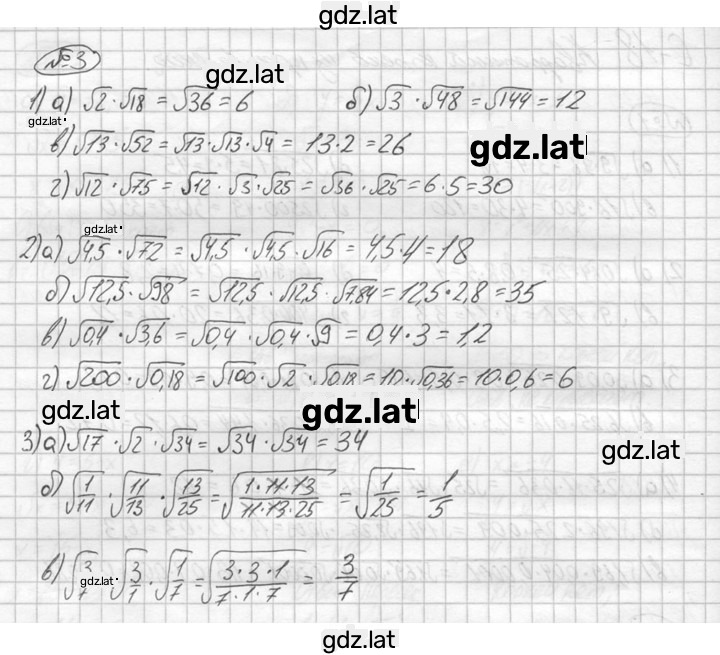 gdz.lat
№3
gdz.lat
1) а) √2 · √18 = √36 = 6 б) √3 · √48 = √144 = 12
gdz.lat
в) √13 · √52 = √13 · √13 · √4 = 13 · 2 = 26
gdz.lat
г) √12 · √75 = √12 · √3 · √25 = √36 · √25 = 6 · 5 = 30
gdz.lat
2) а) √4,5 · √72 = √4,5 · √4,5 · √16 = 4,5 · 4 = 18
б) √12,5 · √98 = √12,5 · √12,5 · √7,84 = 12,5 · 2,8 = 35
в) √0,4 · √3,6 = √0,4 · √0,4 · √9 = 0,4 · 3 = 1,2
г) √200 · √0,18 = √100 · √2 · √0,18 = 10 · √0,36 = 10 · 0,6 = 6
gdz.lat gdz.lat
3) а) √17 · √2 · √34 = √34 · √34 = 34
gdz.lat
б) √(1/11) · √(11/13) · √(13/25) = √((1·11·13)/(11·13·25)) = √(1/25) = 1/5
в) √(3/7) · √(3/1) · √(1/7) = √((3·3·1)/(7·1·7)) = 3/7
gdz.lat
gdz.lat